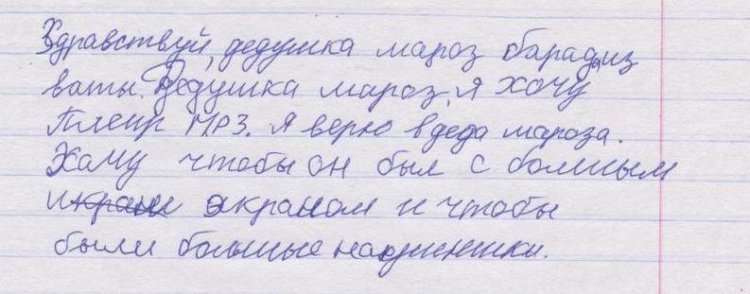 Здравствуй, дедушка мароз барада из
ваты. Дедушка мароз. я хочу
Плеир МР3. Я верю в деда мароза.
Хачу чтобы он был с болшым
икрани экраном и чтобы
были болшые наушники.